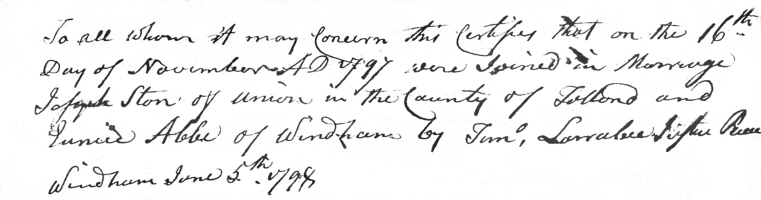 To all whom it may Concern this Certifies that on the 16th
Day of November AD 1797 were Joined in Marriage
Joseph Ston of Union in the County of Tollond and
Eunice Abbe of Windham by Timo, Larrabee Justice Peace
Windham June 5th 1798